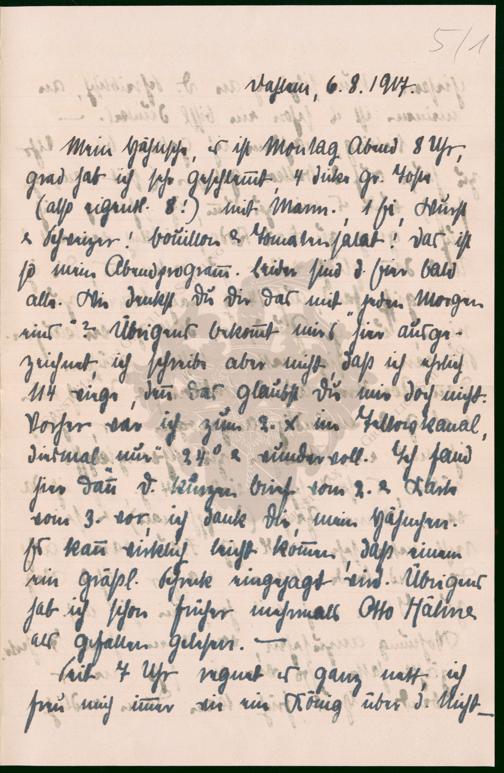 5/1
Dahlem, 6.8.1917.
Mein Hähnsche, es ist Montag Abend 8 Uhr,
grad hab ich sehr geschlemmt, 4 dicke gr. Tost
(also eigentl. 8!) mit Marm., 1 Ei, Wurst
& Schweizer! bouillon & Tomatensalat! das ist
so mein Abendprogram. leider sind d. Eier bald
alle. Wie denkst Du Dir das mit "jeden Morgen
eins"? Übrigens bekomt mirs hier ausge-
zeichnet, ich schreibe aber nicht daß ich ehrlich
114 wiege, den das glaubst Du mir doch nicht.
Vorher war ich zum 2. x im Teltowkanal,
diesmal nur 24° & wundervoll. Ich fand
hier dan d. kurzen brief vom 2. & Karte
vom 3. vor, ich dank Dir mein Hähnchen.
Es kan wirklich leicht komen, daß einem
ein gräßl. Schreck eingejagt wird. Übrigens
hab ich schon früher mehrmals Otto Hähne
als gefallen gelesen. —
Seit 7 Uhr regnet es ganz nett, ich
freu mich imer wie ein König über d. Nicht-